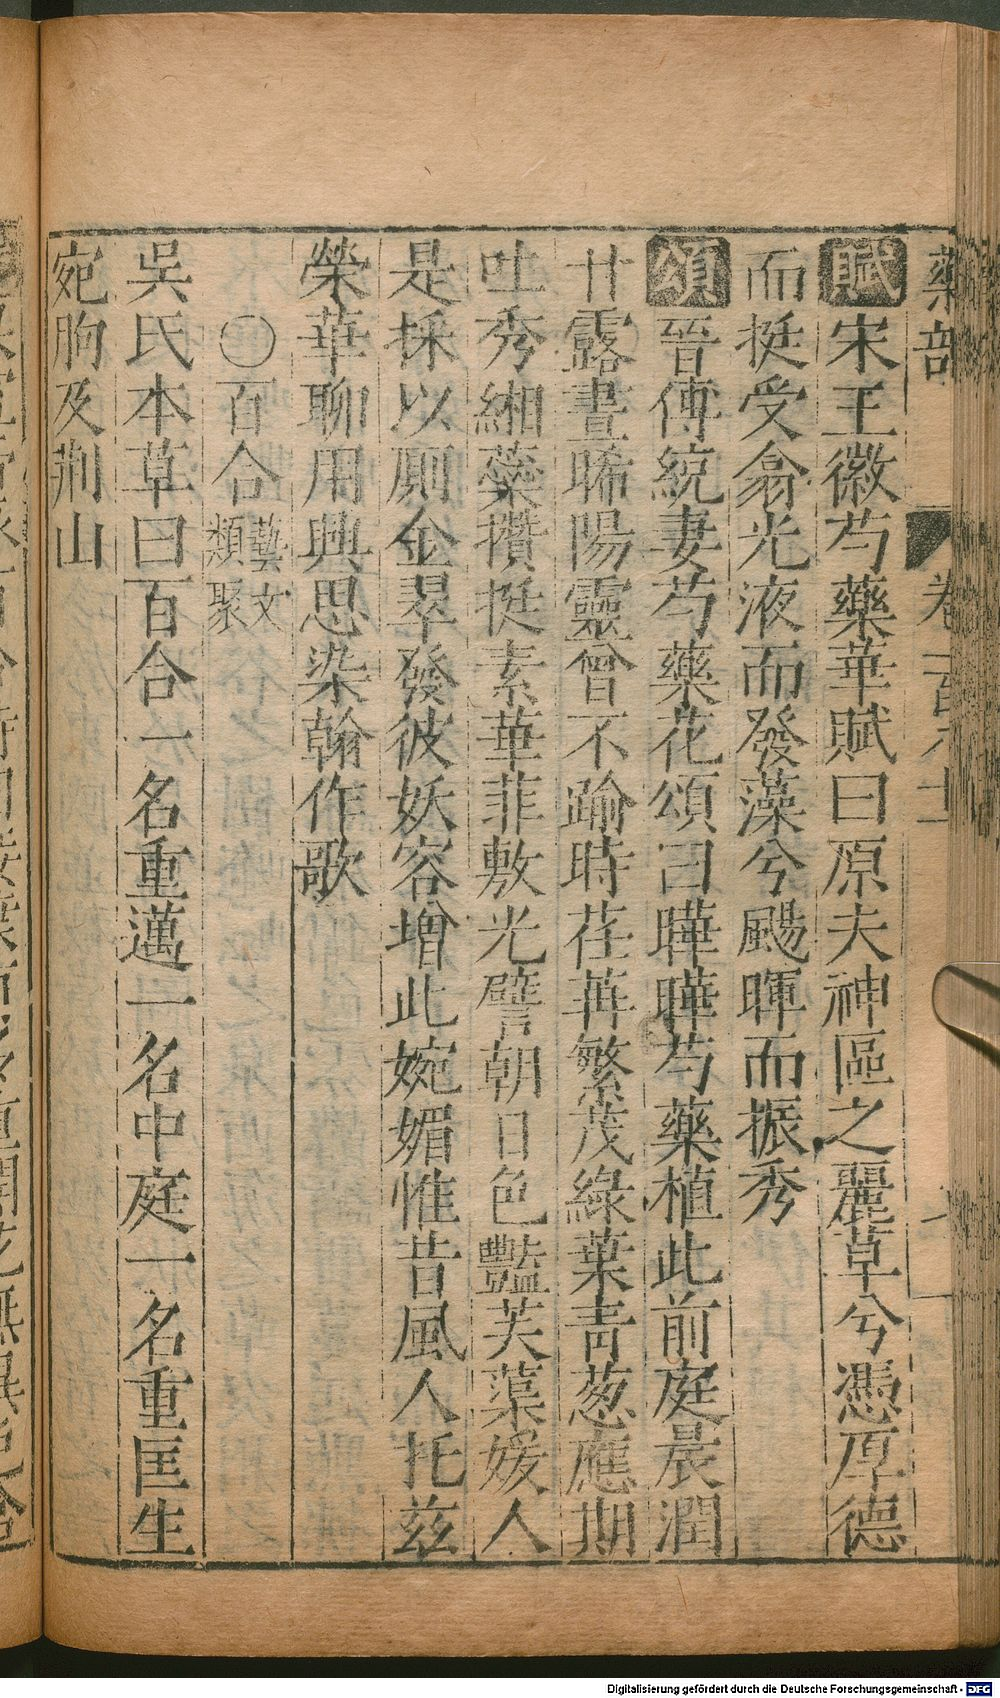 藥部
賦宋王徽芍藥華賦曰原夫神區之麗草兮憑厚德
而挺受翕光液而發藻兮颺暉而振秀
頌晉傅統妻芍藥花頌曰曄曄芍藥植此前庭晨潤
甘露晝晞陽靈曾不踰時荏苒繁茂綠葉青葱應期
吐秀緗蘂攢挺素華菲敷光譬朝日色豔芙蕖媛人
是採以厠金翠發彼妖容增此婉媚惟昔風人托兹
榮華聊用興思染翰作歌
○百合藝文類聚
吳氏本草曰百合一名重邁一名中庭一名重匡生
宛朐及荆山
Digitalisierung gefördert durch die Deutsche Forschungsgemeinschaft - DFG